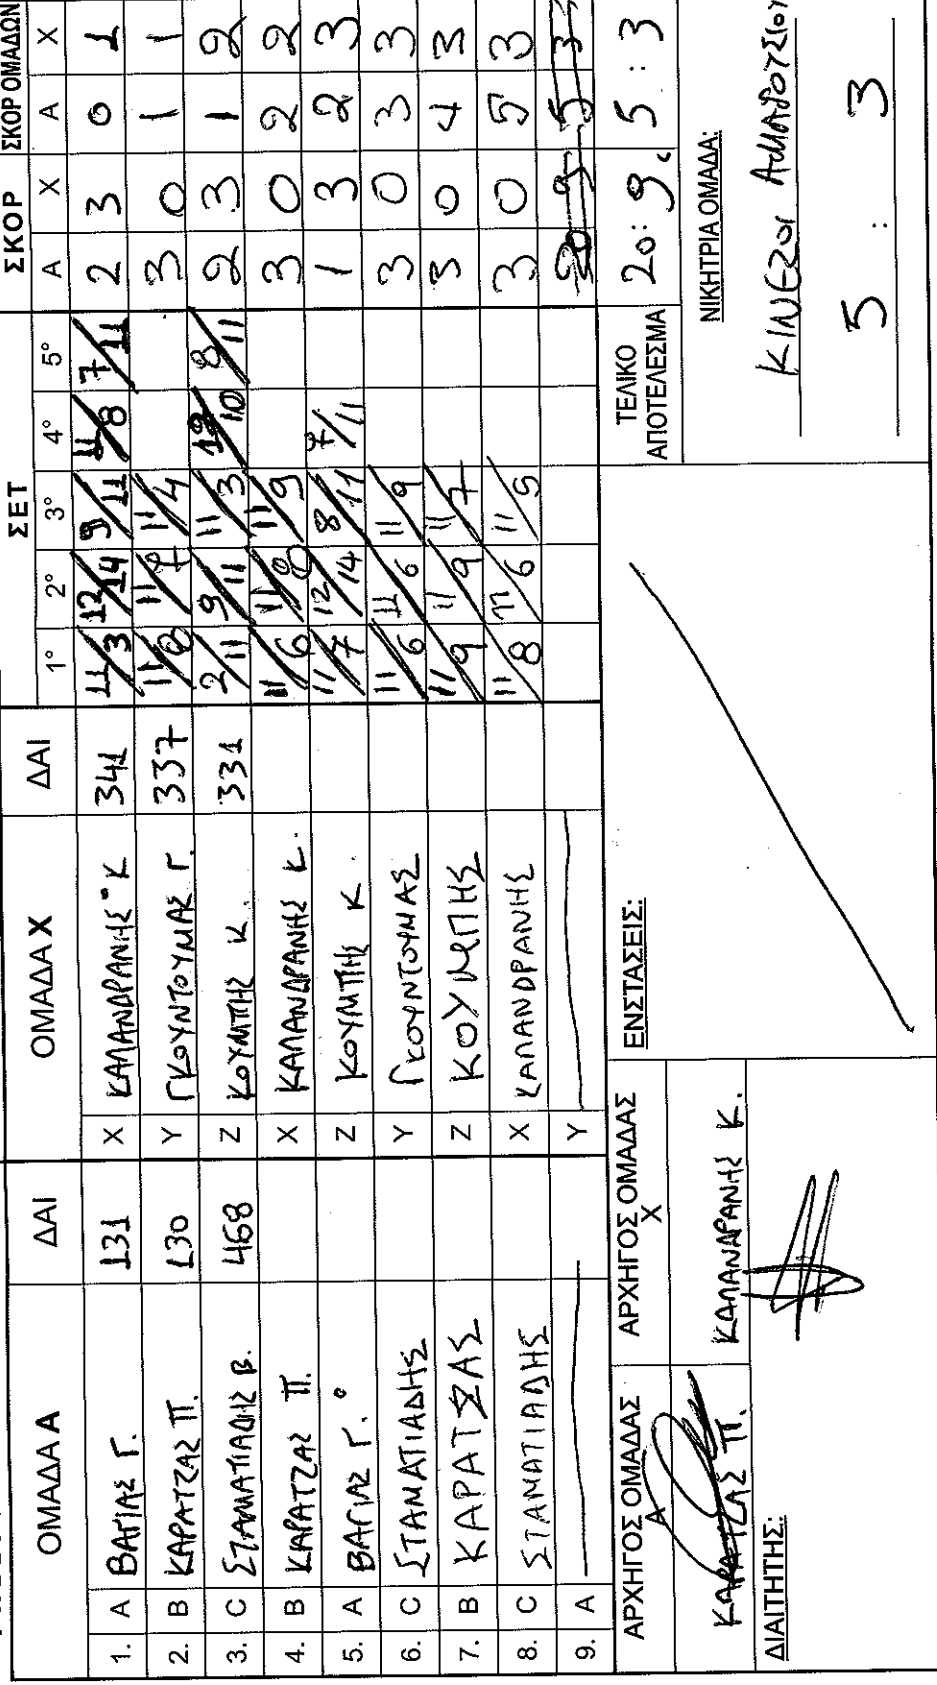 ΟΜΑΔΑ Α ΔΑΙ ΟΜΑΔΑ Χ ΔΑΙ ΣΕΤ ΣΚΟΡ ΣΚΟΡ ΟΜΑΔΩΝ
1° 2° 3° 4° 5° Α Χ Α Χ
1. A ΒΑΓΙΑΣ Γ. 131 X ΚΑΛΑΝΔΡΑΝΗΣ Κ 341 11/3 12/14 9/11 11/8 7/11 2 3 0 1
2. B ΚΑΡΑΤΖΑΣ Π. 130 Y ΓΚΟΥΝΤΟΥΜΑΣ Γ. 337 11/8 11/7 11/4 3 0 1 1
3. C ΣΤΑΜΑΤΙΑΔΗΣ Β. 468 Z ΚΟΥΜΠΗΣ Κ. 331 2/11 9/11 11/3 12/10 8/11 2 3 1 2
4. B ΚΑΡΑΤΖΑΣ Π. X ΚΑΛΑΝΔΡΑΝΗΣ Κ. 11/6 11/8 11/9 3 0 2 2
5. A ΒΑΓΙΑΣ Γ. Z ΚΟΥΜΠΗΣ Κ. 11/7 12/14 8/11 7/11 1 3 2 3
6. C ΣΤΑΜΑΤΙΑΔΗΣ Y ΓΚΟΥΝΤΟΥΜΑΣ 11/6 11/6 11/9 3 0 3 3
7. B ΚΑΡΑΤΣΑΣ Z ΚΟΥΜΠΗΣ 11/9 11/9 11/7 3 0 4 3
8. C ΣΤΑΜΑΤΙΑΔΗΣ X ΚΑΛΑΝΔΡΑΝΗΣ 11/8 11/6 11/5 3 0 5 3
9. A Y 20 9 5 3
ΑΡΧΗΓΟΣ ΟΜΑΔΑΣ Α ΑΡΧΗΓΟΣ ΟΜΑΔΑΣ Χ ΕΝΣΤΑΣΕΙΣ: ΤΕΛΙΚΟ ΑΠΟΤΕΛΕΣΜΑ 20:9 5:3
ΚΑΡΑΤΖΑΣ Π. ΚΑΛΑΝΔΡΑΝΗΣ Κ. ΝΙΚΗΤΡΙΑ ΟΜΑΔΑ:
ΔΙΑΙΤΗΤΗΣ: ΚΙΝΕΖΟΙ
5 : 3